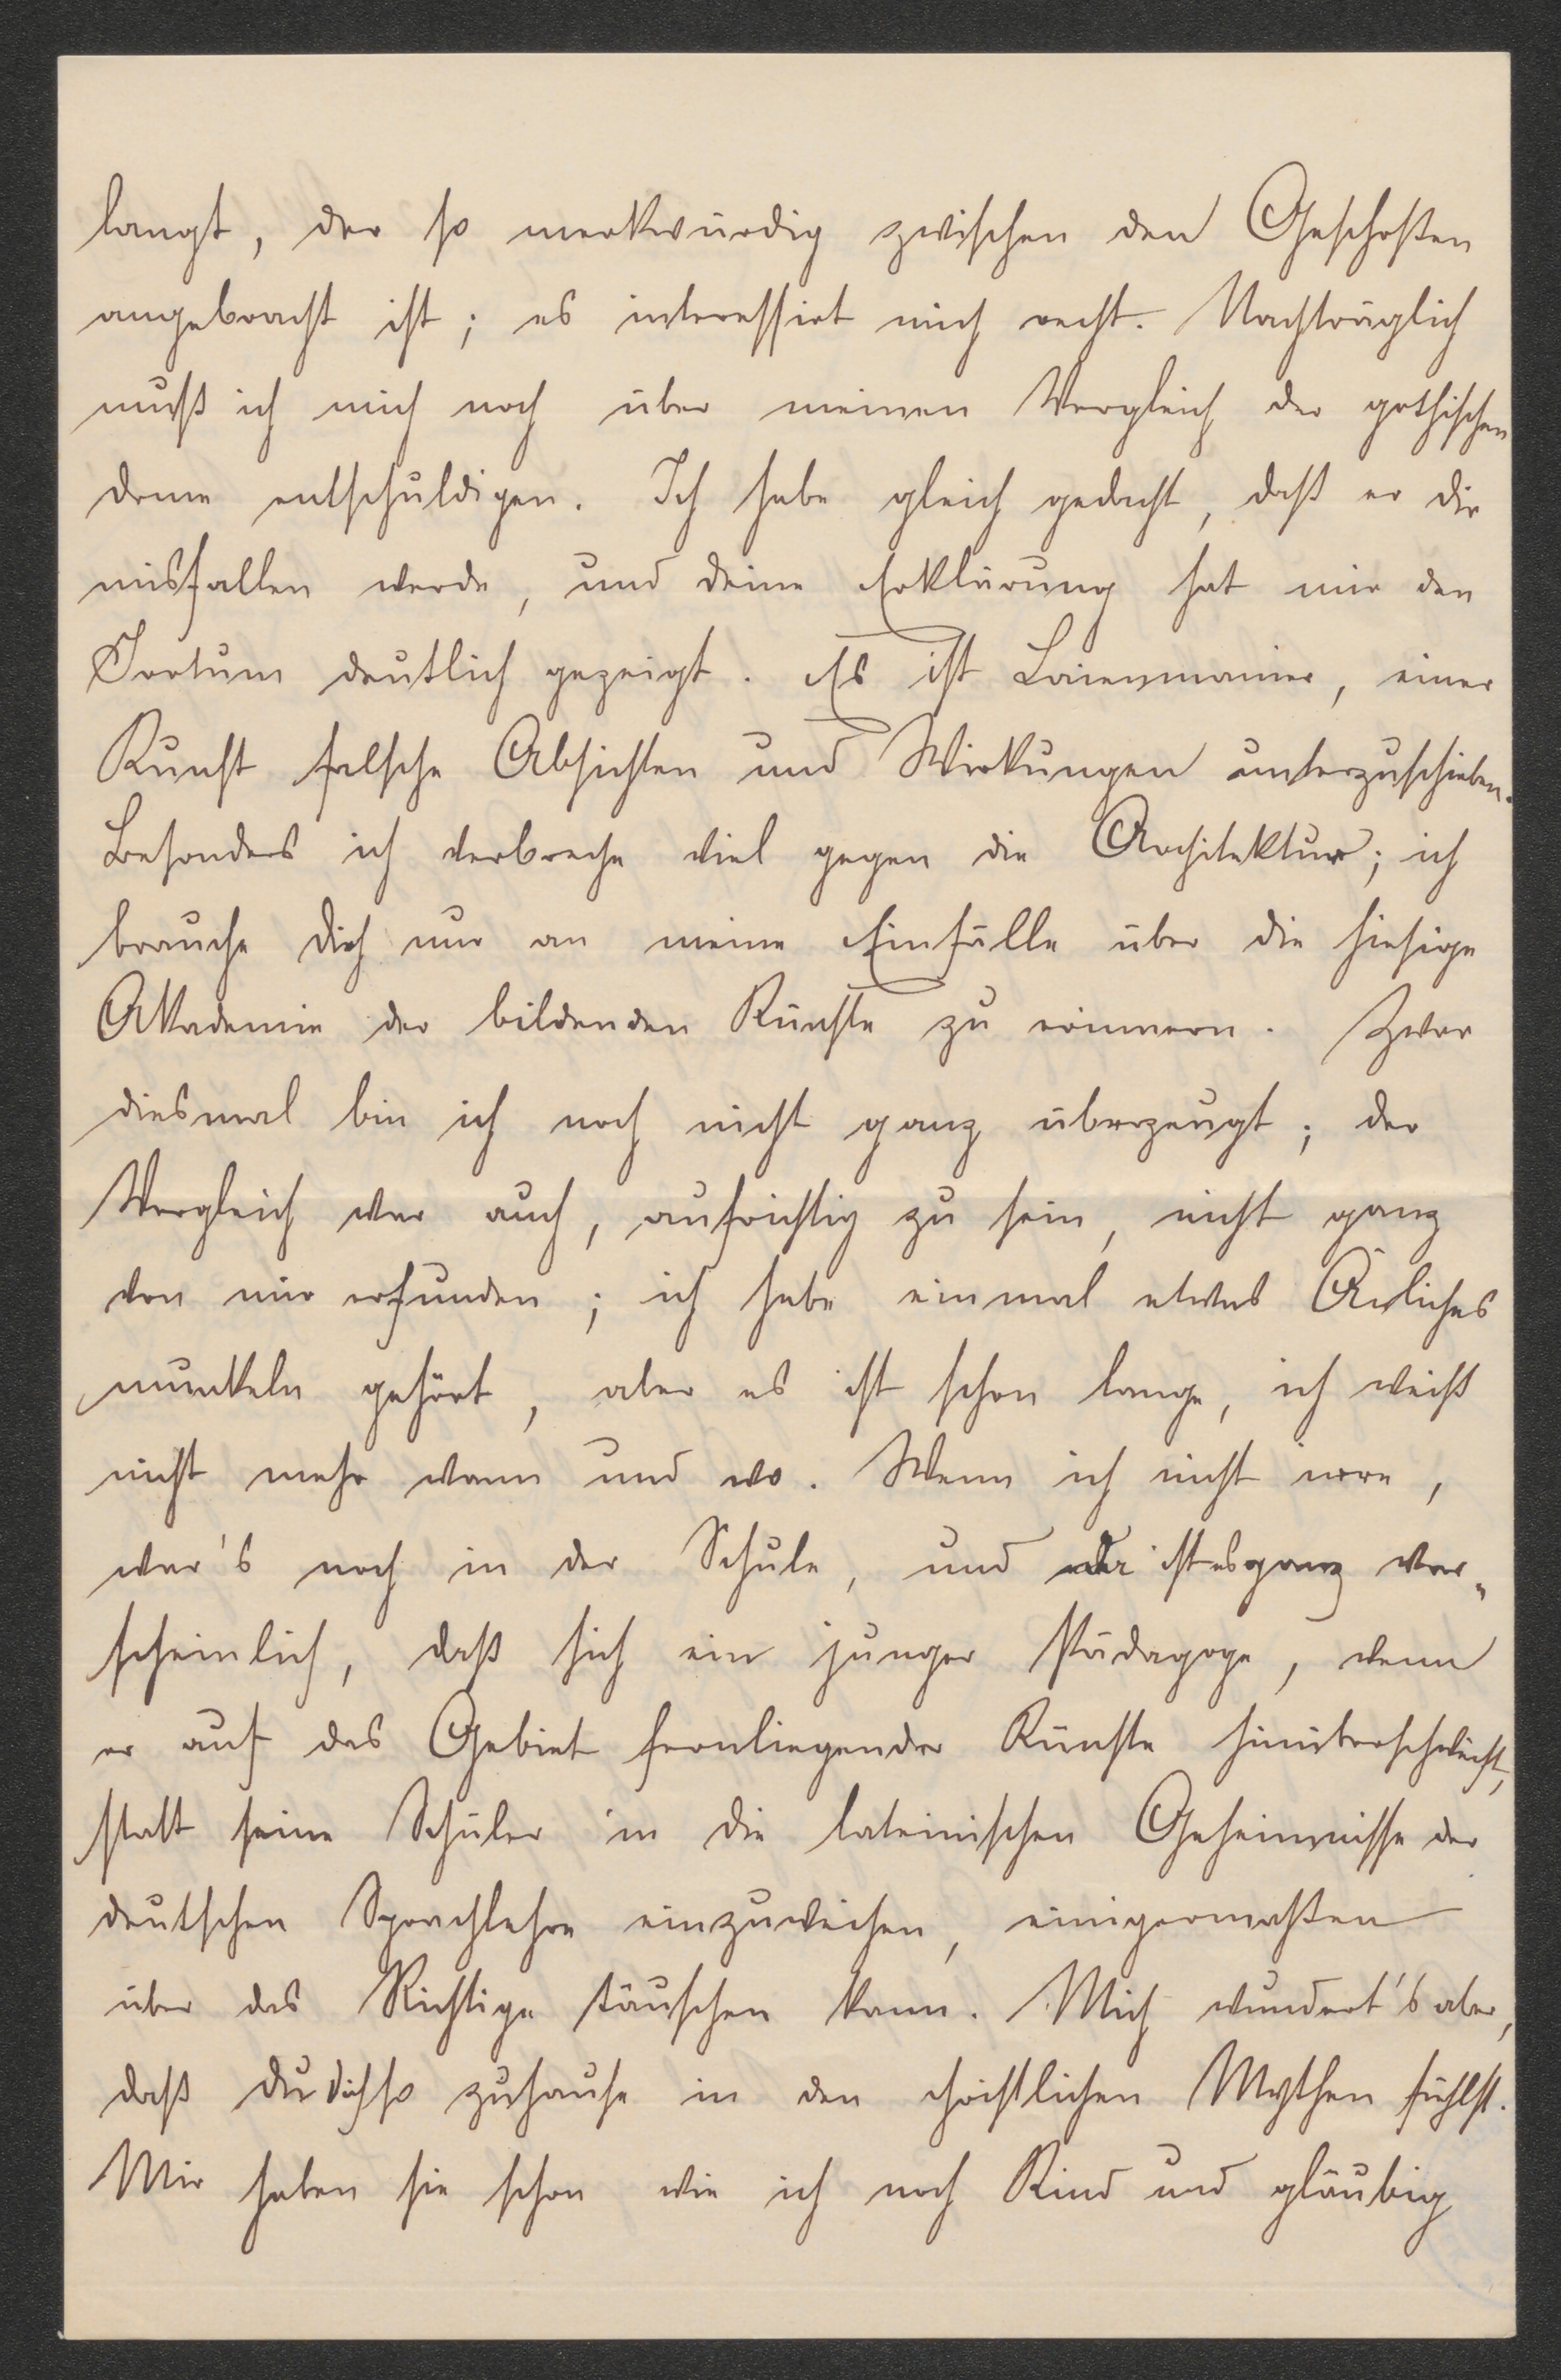 langt, der so merkwürdig zwischen den Geschoßen
angebracht ist; es interessirt mich recht. Nachträglich
muß ich mich noch über meinen Vergleich der gothischen
dome entschuldigen. Ich habe gleich gedacht, daß er dir
misfallen werde, und deine Erklärung hat mir den
Irrtum deutlich gezeigt. Es ist Laienmanier, einer
Kunst falsche Absichten und Wirkungen unterzuschieben.
Besonders ich verbreche viel gegen die Architektur; ich
brauche dich nur an meine Einfälle über die hiesige
Akademie der bildenden Künste zu erinnern. Zwar
diesmal bin ich noch nicht ganz überzeugt; der
Vergleich war auch, aufrichtig zu sein, nicht ganz
von mir erfunden; ich habe einmal etwas Änliches
munkeln gehört, aber es ist schon lange, ich weiß
nicht mehr wann und wo. Wenn ich nicht irre,
war's noch in der Schule, und da ist es ganz war„
scheinlich, daß sich ein junger Pädagoge, wenn
er auf das Gebiet fernliegender Künste hinüberschweift,
statt seine Schüler in die lateinischen Geheimnisse der
deutschen Sprachlehre einzuweihen, einigermaßen
über das Richtige täuschen kann. Mich wundert's aber,
daß du dich so zuhause in den christlichen Mythen fühlst.
Mir haben sie schon wie ich noch Kind und gläubig